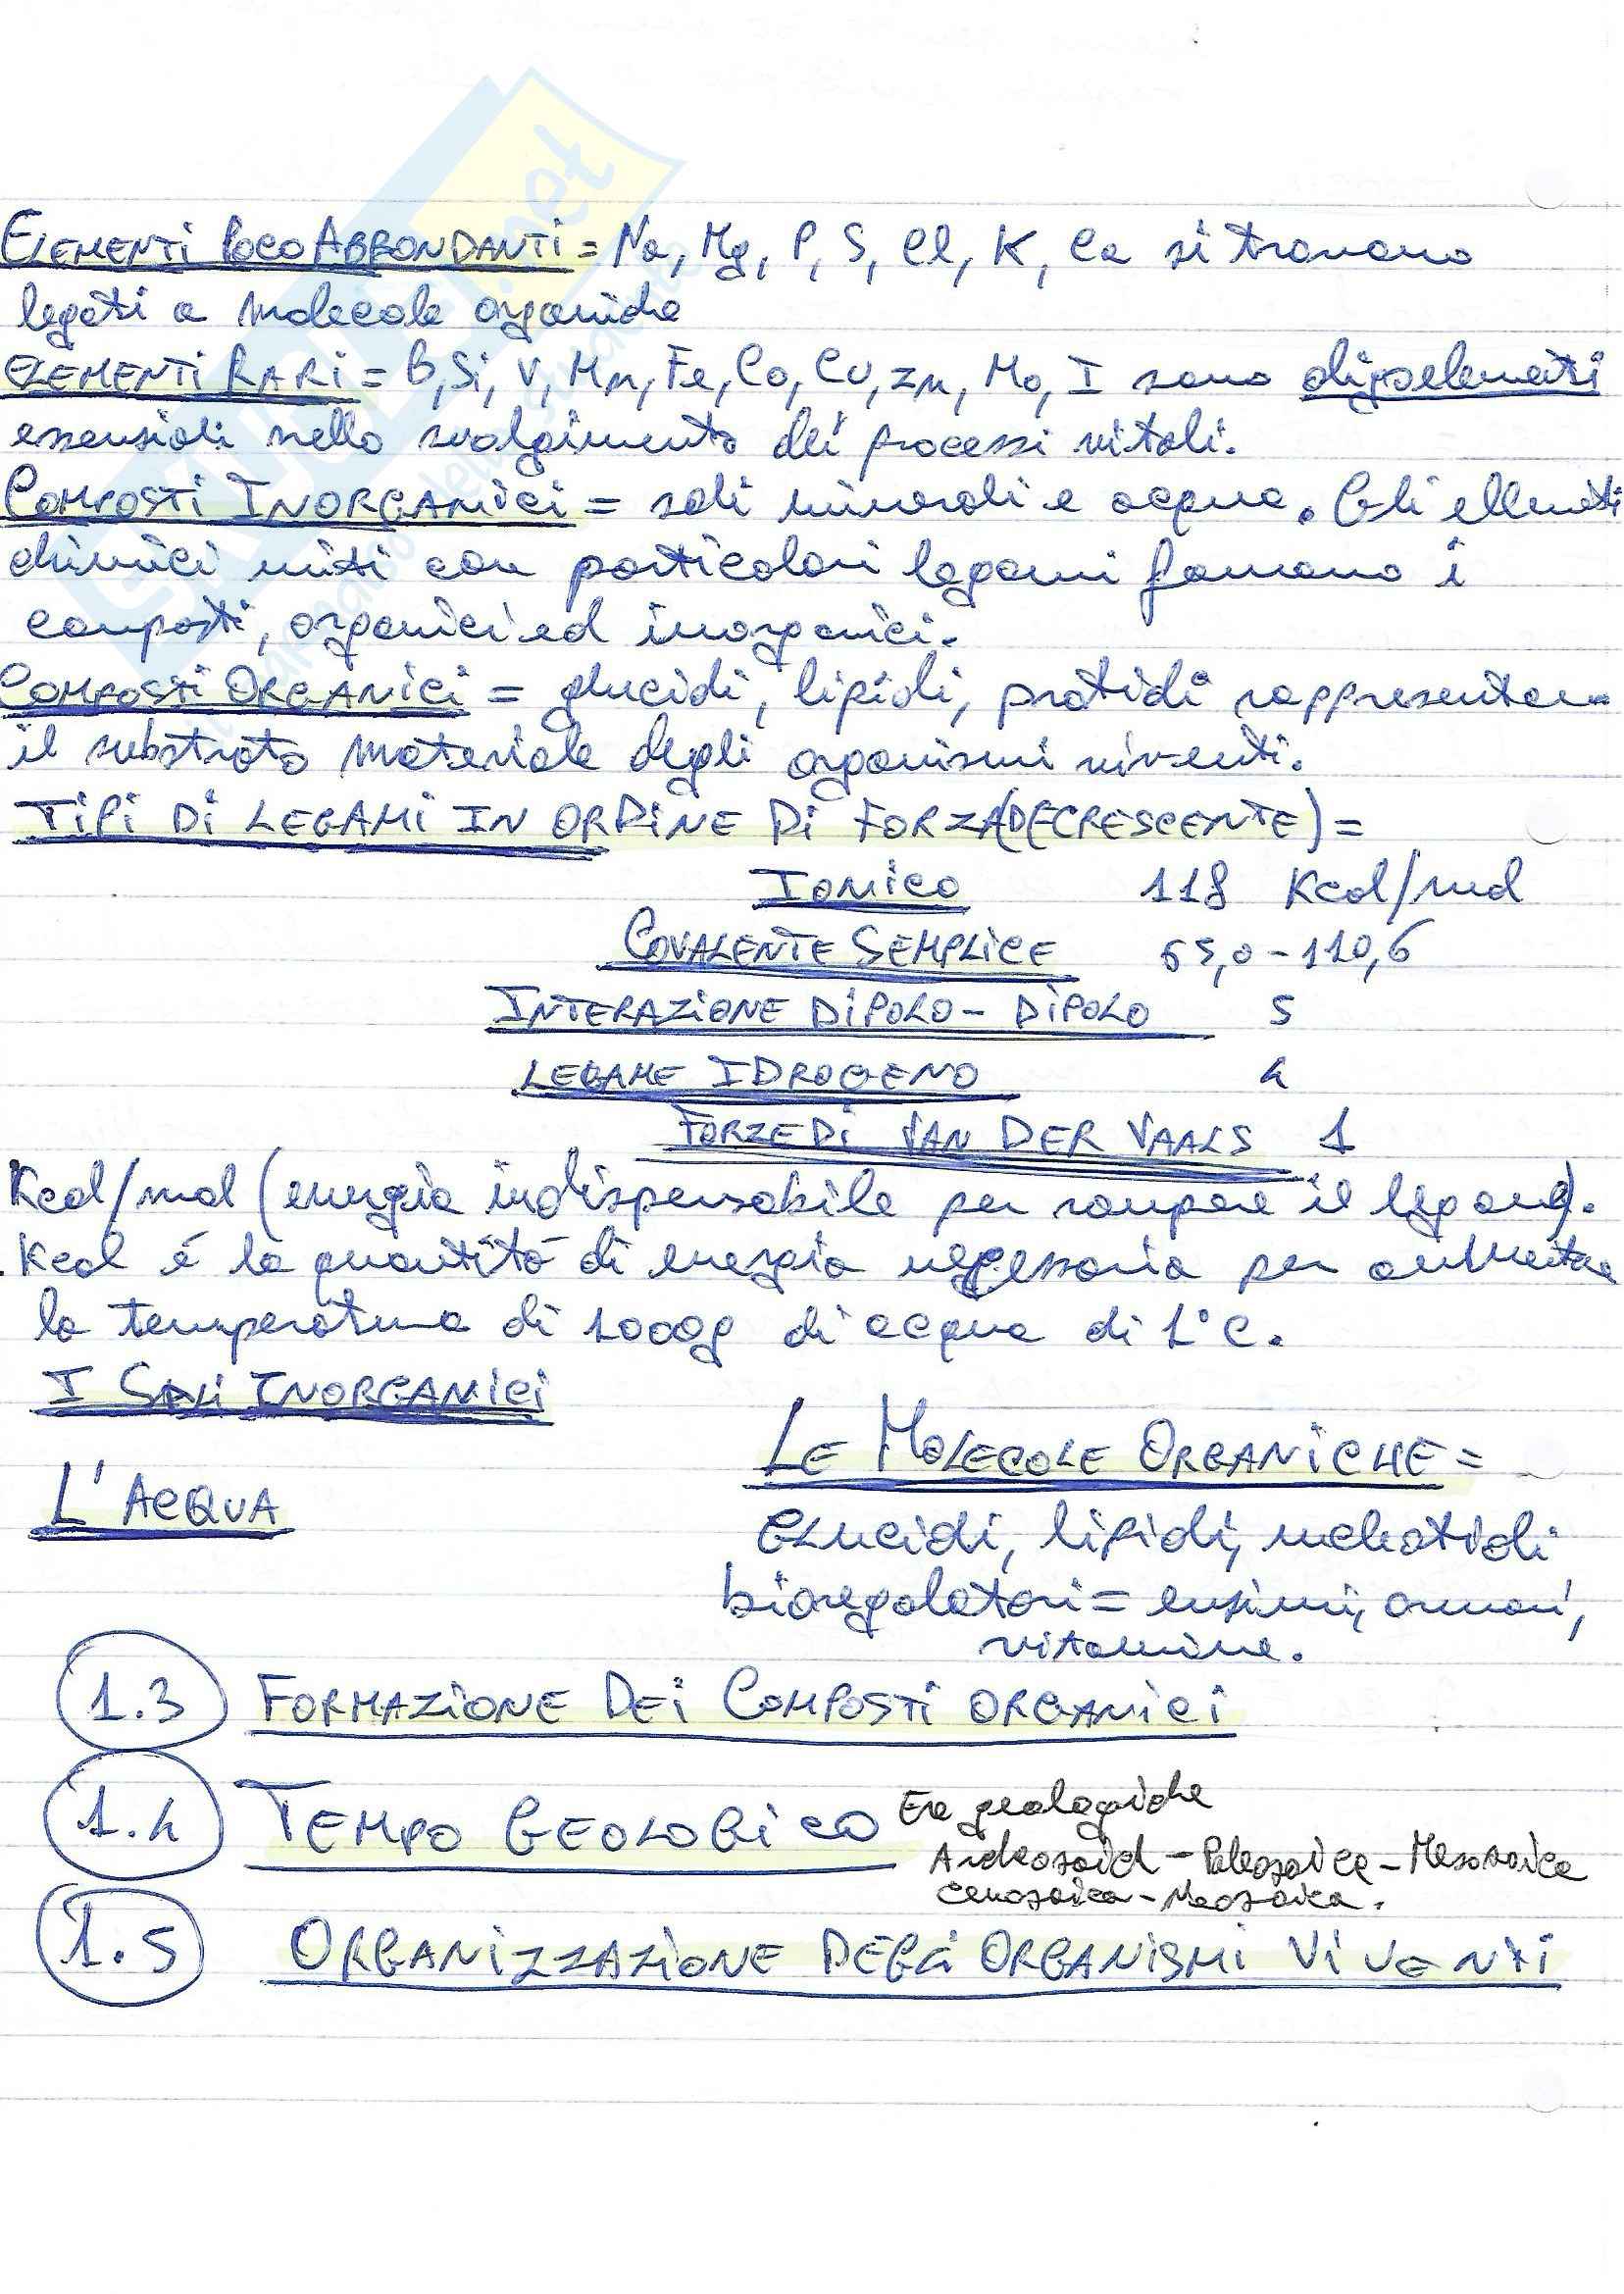 ELEMENTI POCO ABBONDANTI = Na, Mg, P, S, Cl, K, Ca si trovano
legati a molecole organiche
ELEMENTI RARI = B, Si, V, Mn, Fe, Co, Cu, Zn, Mo, I sono oligoelementi
essenziali nello svolgimento dei processi vitali.
COMPOSTI INORGANICI = sali minerali e acqua. Gli ellementi
chimici uniti con particolari legami formano i
composti, organici ed inorganici.
COMPOSTI ORGANICI = glucidi, lipidi, protidi rappresentano
il substrato materiale degli organismi viventi.
TIPI DI LEGAMI IN ORDINE DI FORZA (DECRESCENTE) =
IONICO 118 Kcal/mol
COVALENTE SEMPLICE 65,0 - 110,6
INTERAZIONE DIPOLO - DIPOLO 5
LEGAME IDROGENO 4
FORZE DI VAN DER VAALS 1
Kcal/mol (energia indispensabile per rompere il legame).
Kcal é la quantitá di energia necessaria per aumentare
la temperatura di 1000g di acqua di 1°C.
I SALI INORGANICI
LE MOLECOLE ORGANICHE =
L'ACQUA
GLUcidi, lipidi, nucleotidi
bioregolatori = enzimi, ormoni,
vitamine.
1.3 FORMAZIONE DEI COMPOSTI ORGANICI
1.4 TEMPO GEOLOGICO Ere geologiche
Archeozoica - Paleozoica - Mesozoica
Cenozoica - Neozoica.
1.5 ORGANIZZAZIONE DEGLI ORGANISMI VIVENTI